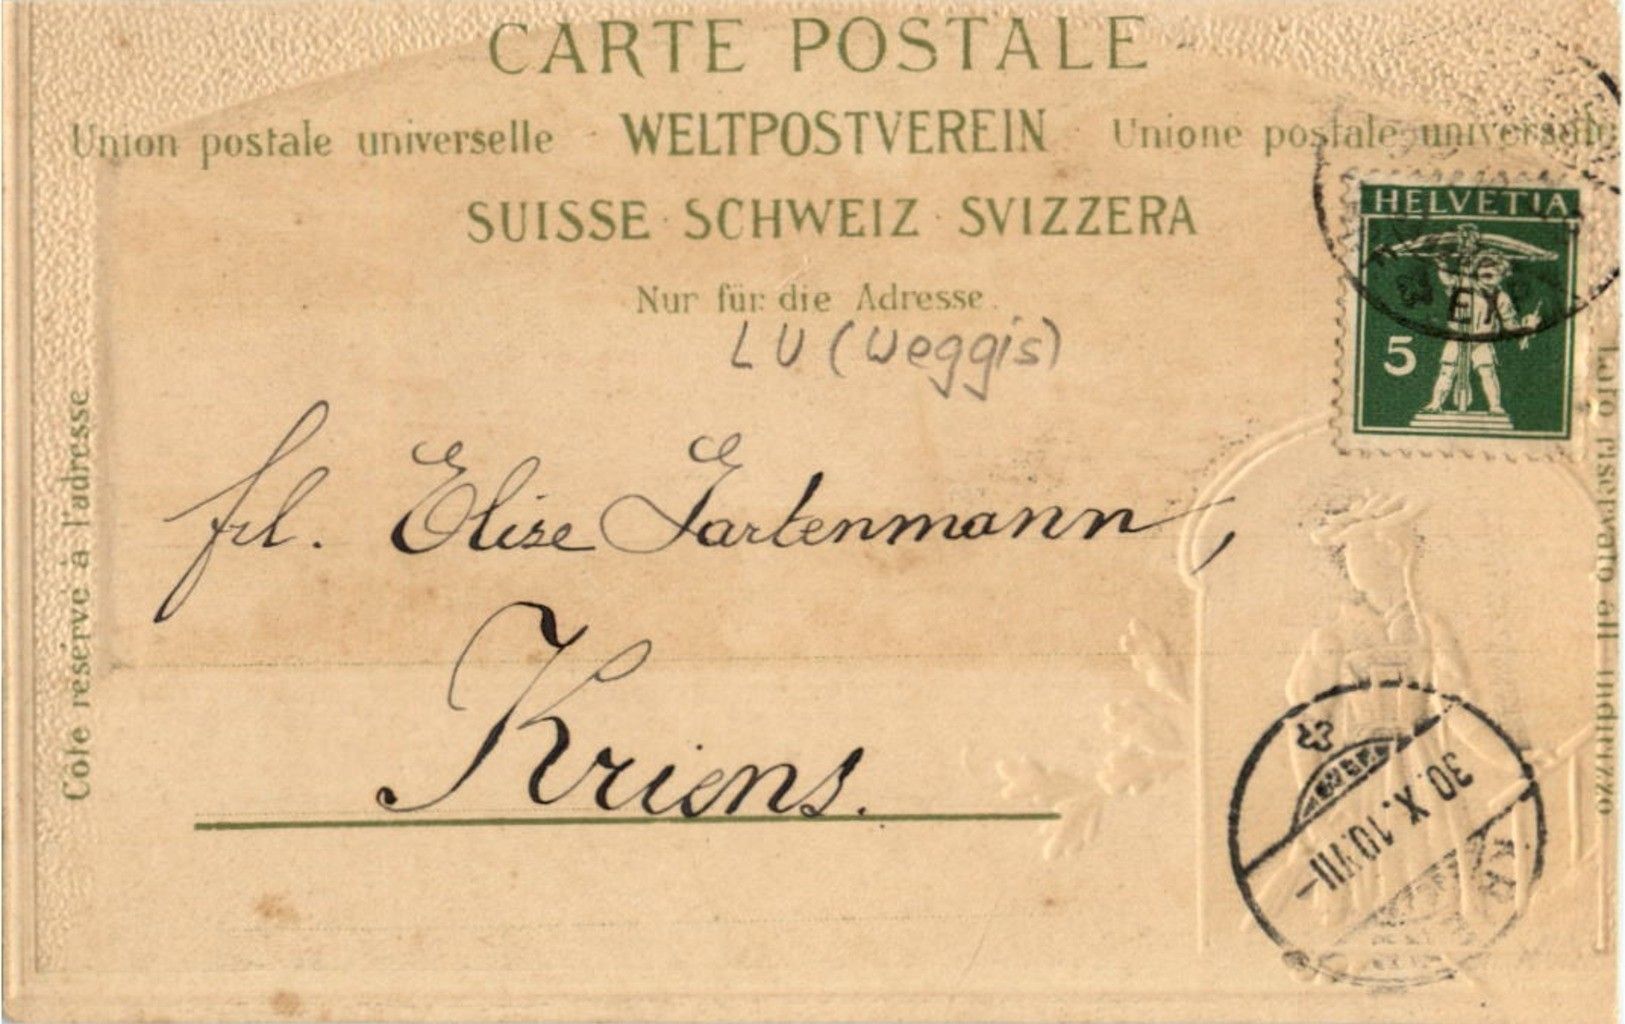 CARTE POSTALE
Union postale universelle WELTPOSTVEREIN Unione postale universelle
SUISSE · SCHWEIZ · SVIZZERA
Nur für die Adresse.
LU (Weggis)
HELVETIA
5
Côté réservé à l'adresse
Lato riservato all'indirizzo
frl. Elise Gartenmann,
Kriens.
30. X. 10. VII–